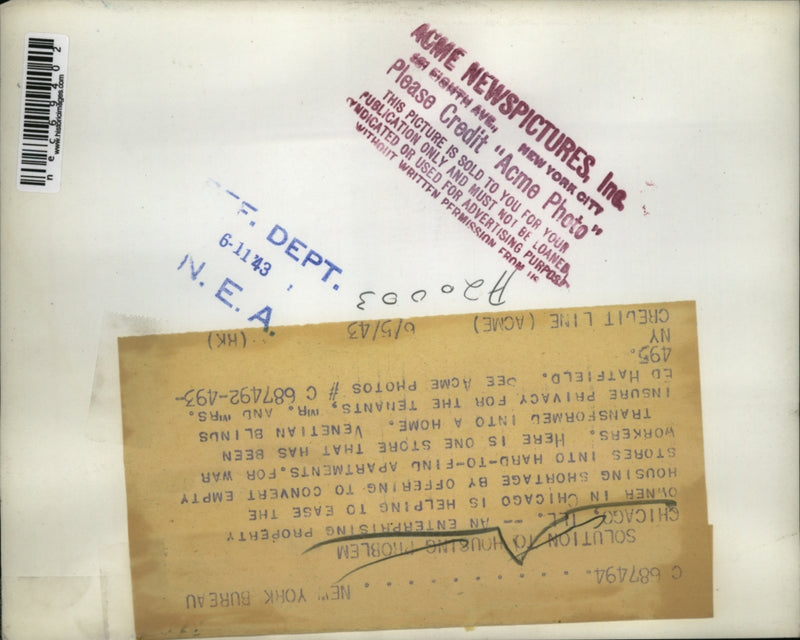 nec69402
www.historicimages.com
ACME NEWSPICTURES, Inc.
461 EIGHTH AVE., NEW YORK CITY
Please Credit "Acme Photo"
THIS PICTURE IS SOLD TO YOU FOR YOUR
PUBLICATION ONLY AND MUST NOT BE LOANED,
SYNDICATED OR USED FOR ADVERTISING PURPOSES
WITHOUT WRITTEN PERMISSION FROM US
EF. DEPT.
6-11'43
N. E. A.
A20003
C 687494. . . . . . . . . . . . . NEW YORK BUREAU
SOLUTION TO HOUSING PROBLEM
CHICAGO, ILL. -- AN ENTERPRISING PROPERTY
OWNER IN CHICAGO IS HELPING TO EASE THE
HOUSING SHORTAGE BY OFFERING TO CONVERT EMPTY
STORES INTO HARD-TO-FIND APARTMENTS FOR WAR
WORKERS. HERE IS ONE STORE THAT HAS BEEN
TRANSFORMED INTO A HOME. VENETIAN BLINDS
INSURE PRIVACY FOR THE TENANTS, MR. AND MRS.
ED HATFIELD. SEE ACME PHOTOS # C 687492-493-
495.
NY
CREDIT LINE (ACME) 6/5/43 (HK)